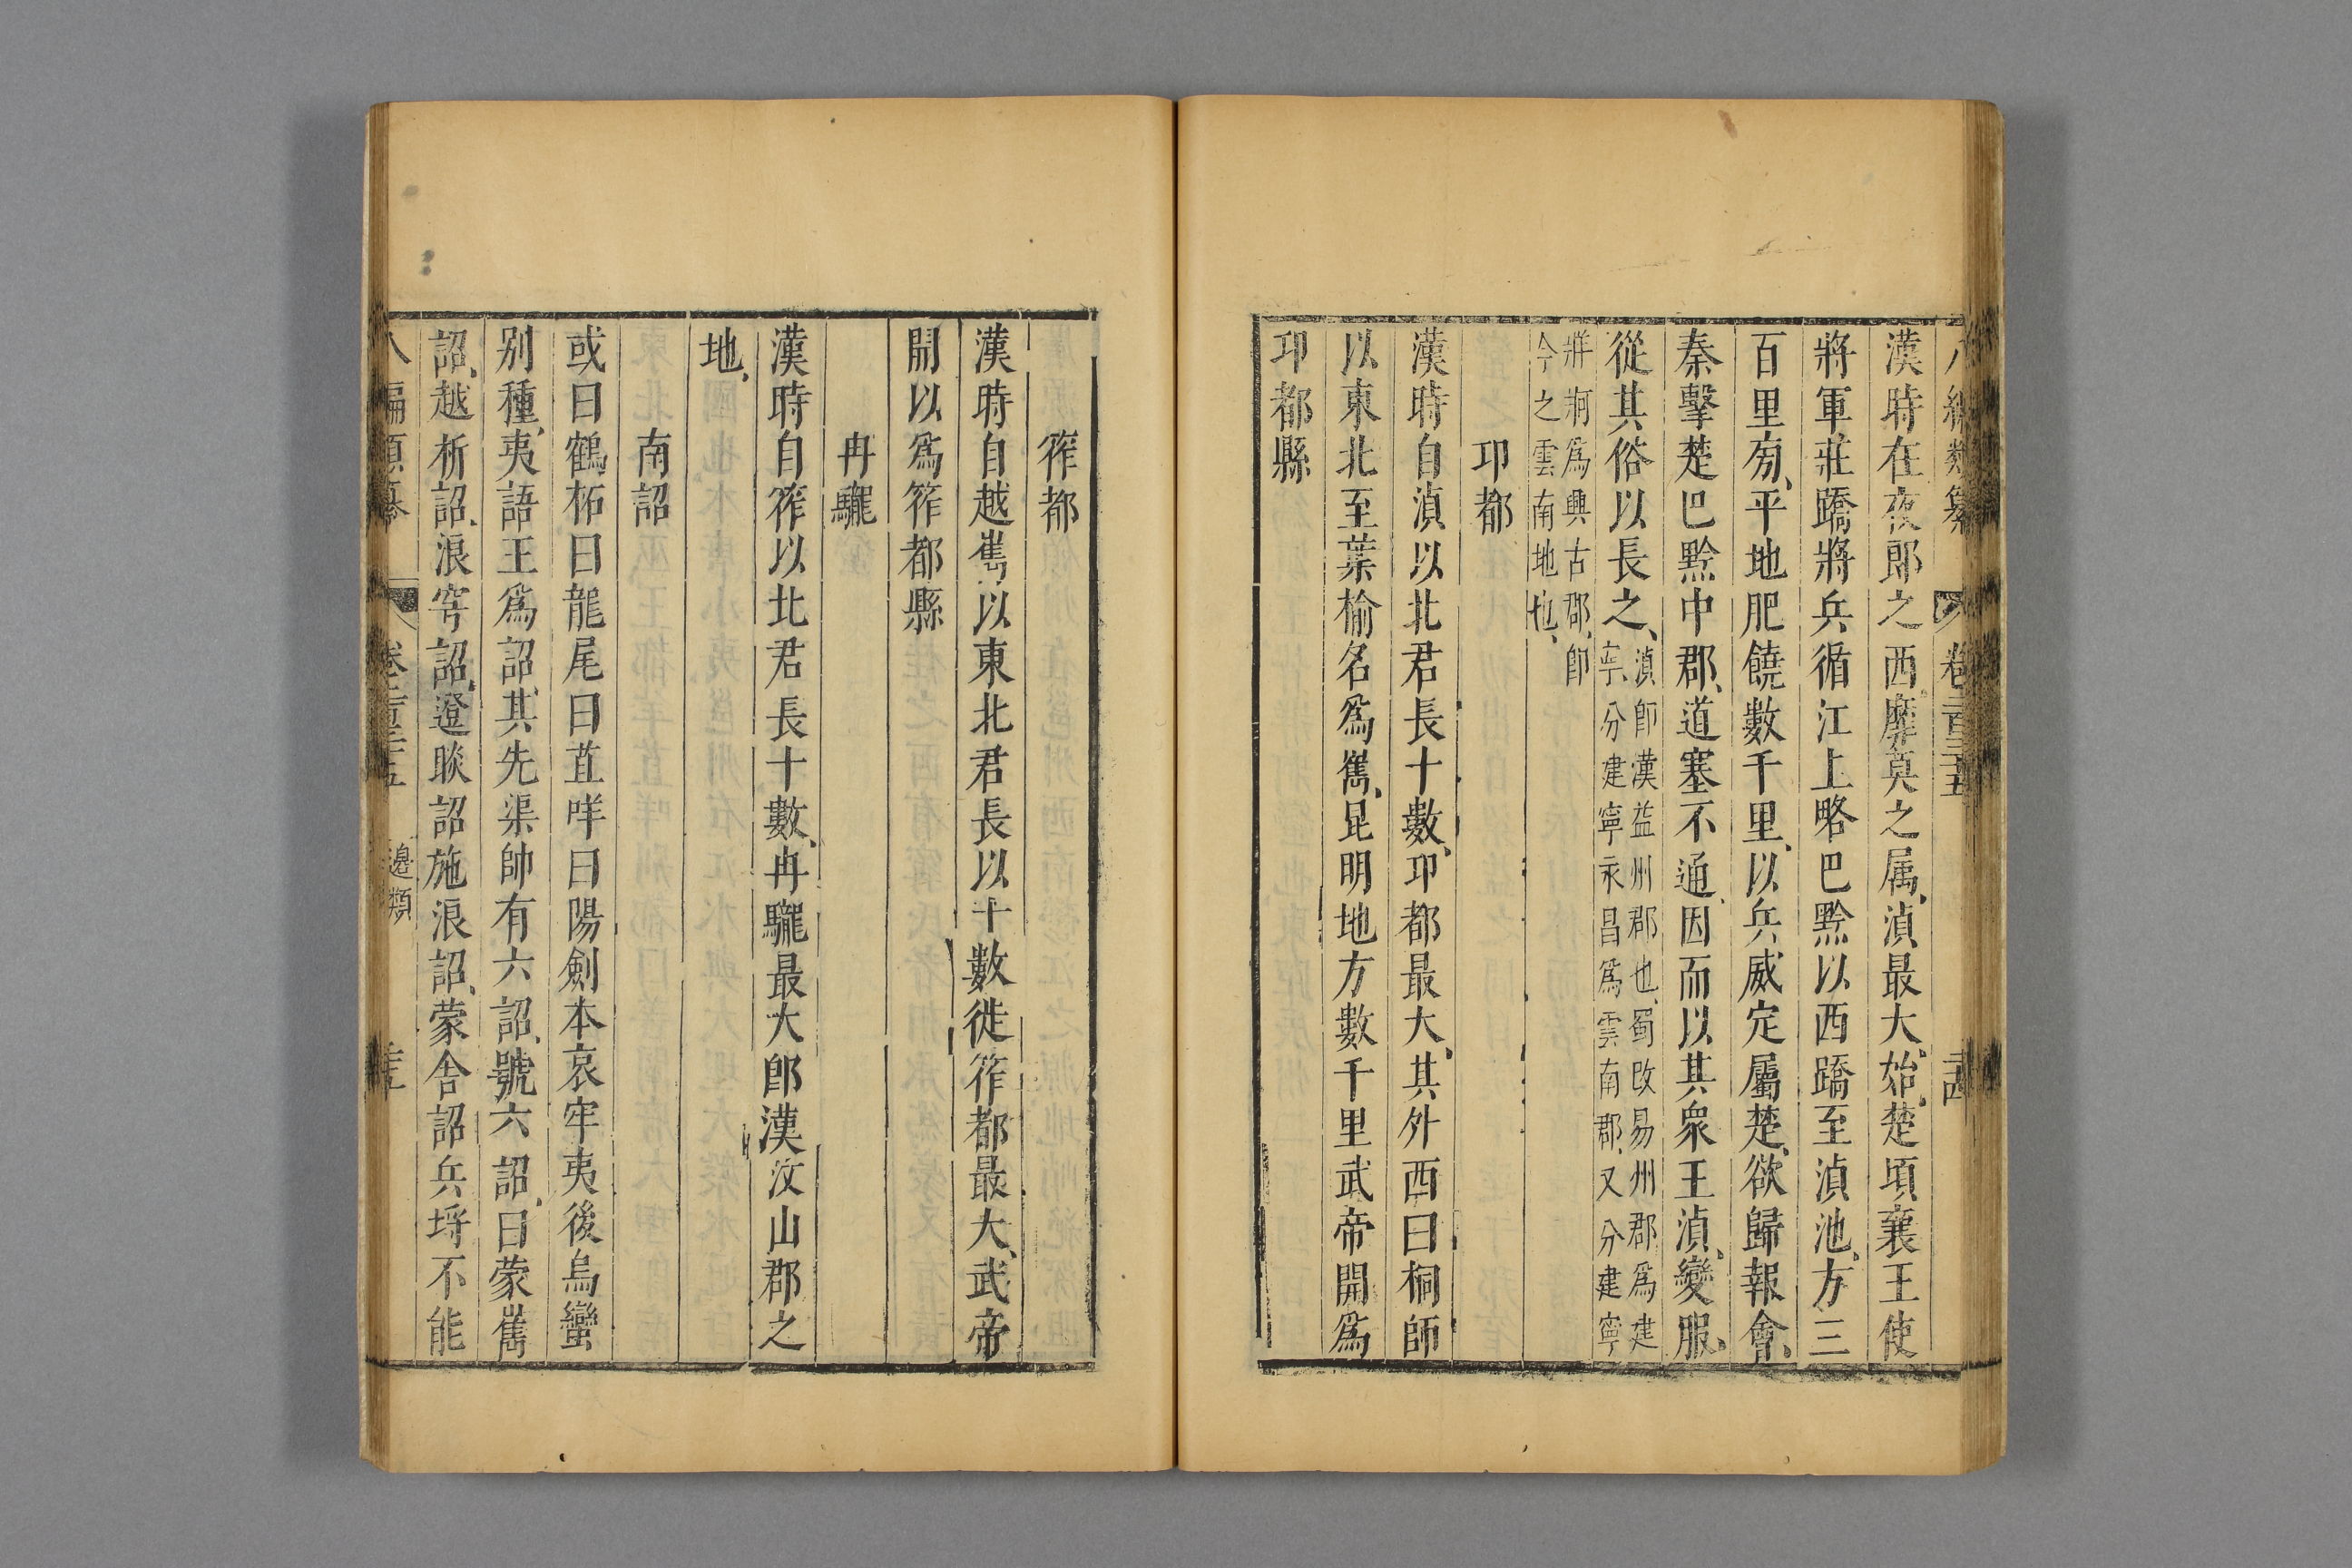 八編類纂 卷二百三十五 二十四
漢時在夜郎之西靡莫之属、滇最大、始楚頃襄王使
將軍莊蹻將兵循江上略巴黔以西蹻至滇池、方三
百里旁、平地肥饒數千里、以兵威定屬楚、欲歸報會、
秦擊楚巴黔中郡、道塞不通、因而以其衆王滇、變服、
從其俗以長之、滇卽漢益州郡也、蜀改易州郡爲建
寧、分建寧永昌爲雲南郡、又分建寧
牂牁爲興古郡、卽
今之雲南地也、
卭都
漢時自滇以北君長十數、卭都最大、其外西曰桐師
以東北至葉榆名爲嶲、昆明地方數千里武帝開爲
卭都縣
筰都
漢時自越嶲以東北君長以十數徙筰都最大、武帝
開以爲筰都縣
冉駹
漢時自筰以北君長十數、冉駹最大郎漢汶山郡之
地、
南詔
或曰鶴柘曰龍尾曰苴咩曰陽劍本哀牢夷後烏蠻
别種、夷語王爲詔、其先渠帥有六詔、號六詔、曰蒙嶲
詔、越析詔、浪穹詔、邆睒詔施浪詔、蒙舍詔兵埓不能
八編類纂 卷二百三十五 邊類 二十五